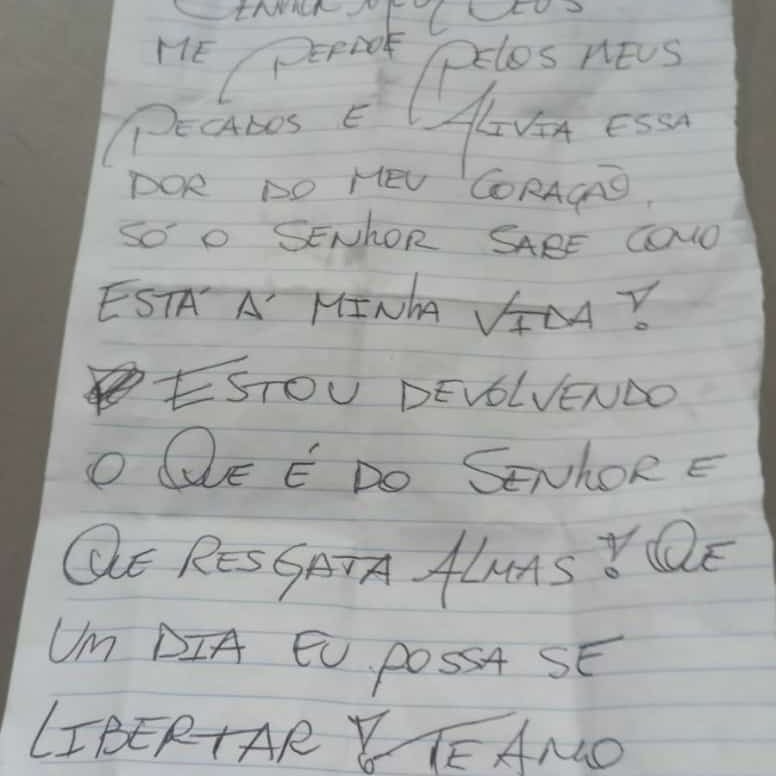 DEUS
ME PERDOE PELOS MEUS
PECADOS E ALIVIA ESSA
DOR DO MEU CORAÇAO.
SÓ O SENHOR SABE COMO
ESTÁ Á MINHA VIDA!
ESTOU DEVOLVENDO
O QUE É DO SENHOR E
QUE RESGATA ALMAS! QUE
UM DIA EU POSSA SE
LIBERTAR! TE AMO